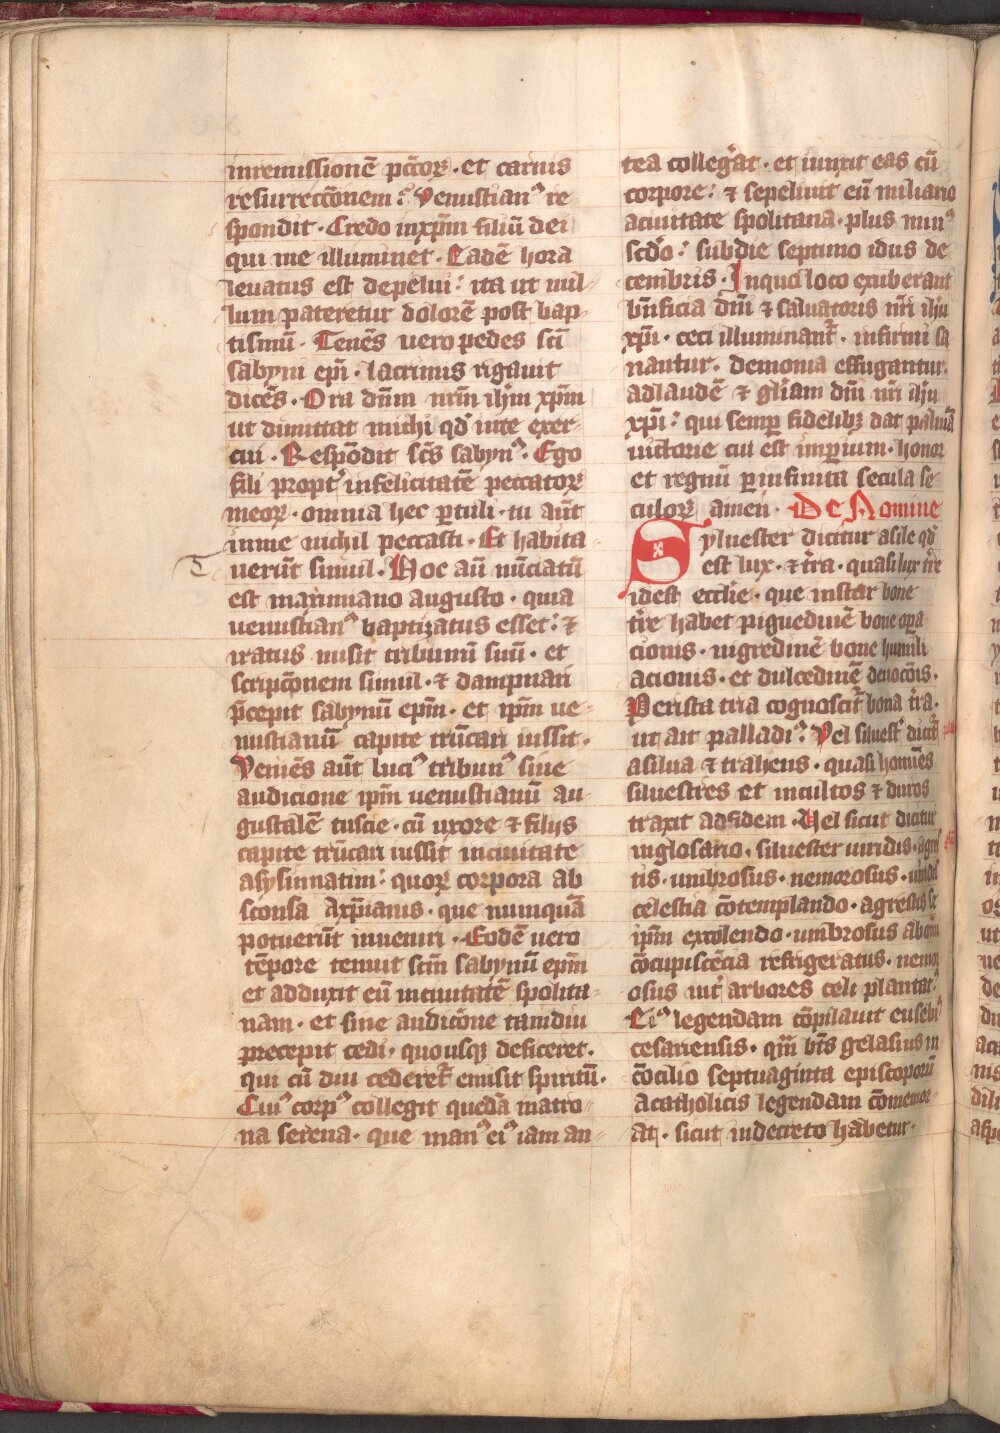 inremissionē pctōꝝ · et carnis
resurrectōnem :᷎ Venustianꝰ re
spondit · Credo inxpm̄ filiū dei
qui me illuminet · Eadē hora
leuatus est depelui : ita ut nul
lum pateretur dolorē post bap
tismū · Tenēs uero pedes sci̅
sabyni epi̅ · lacrimis rigauit
dicēs · Ora dnm̄ nrm̄ ihm̄ xpm̄
ut dimittat michi qd̓ inte exer
cui · Respōdit scs̄ sabynꝰ · Ego
fili propt̓ infelicitatē peccatoꝝ
meoꝝ · omnia hec ꝑtuli · tu aūt
inme nichil peccasti · Et habita
uerūt simul · Hoc aū nūciatū
est maximiano augusto · quia
uenustianꝰ baptizatus esset : ⁊
iratus misit tribunū suū · et
scripcōnem simul · ⁊ dampnari
p̄cepit sabynū epm̄ · et ipm̄ ue
nustianū capite trūcari iussit ·
Veniēs aūt luciꝰ tribunꝰ sine
audicione ipm̄ uenustianū au
gustalē tuscie · cū uxore ⁊ filijs
capite trūcari iussit inciuitate
asysinnatim : quoꝝ corpora ab
sconsa Axp̄ianis · que nunquā
potuerūt inueniri · Eodē uero
tēpore tenuit scm̄ sabynū epm̄
et adduxit eū inciuitatē spolita
nam · et sine audicōne tamdiu
precepit cedi · quousqꝫ deficeret ·
qui cū diu cederet᷎ emisit spiritū ·
Cuiꝰ corpꝰ collegit quedā matro
na serena · que manꝰ eiꝰ iam an
tea colleg̓at · et iunxit eas cū
corpore : ⁊ sepeliuit eū miliario
aciuitate spolitana · plus minꝰ
scdo̅ : subdie septimo idus de
cembris · Inquo loco exuberant
bn̄ficia dn̄i ⁊ saluatoris nr̄i ihu̅
xpi̅ · ceci illuminant᷎ · infirmi sa
nantur · demonia effugantur ·
adlaudē ⁊ gl̓iam dn̄i nr̄i ihu̅
xpi̅ : qui semꝑ fidelibꝫ dat palmā
uictorie cui est imꝑium · honor
et regnū ꝑinfinita secula se
culoꝝ amen · De Nomine
Syluester dicitur asile qd̓
est lux · ⁊ t̓ra · quasi lux t̓re
idest eccl̄ie · que instar bone
t̓re habet piguedinē bone oꝑa
cionis · nigredinē bone humili
acionis · et dulcedinē deuocōis ·
Perista tria cognoscit᷎ bona t̓ra ·
ut ait palladiꝰ · Vel siluest̓ dicit᷎
asilua ⁊ trahens · quasi homīes
siluestres et incultos ⁊ duros
traxit adfidem · Vel sicut dicitur
inglosario · siluester uiridis · agres
tis · umbrosus · nemorosus · uiridis
celestia cōtemplando · agrestis se
ipm̄ excolendo · umbrosus ab omni
cōcupiscēcia refrigeratus · nemor
osus int̓ arbores celi plantatꝰ
Eiꝰ legendam cōpilauit eusebiꝰ
cesariensis · qm̄ bt̄s gelasius in
cōcilio septuaginta episcoporū
acatholicis legendam cōmemor
at᷎ · sicut indecreto habetur ·